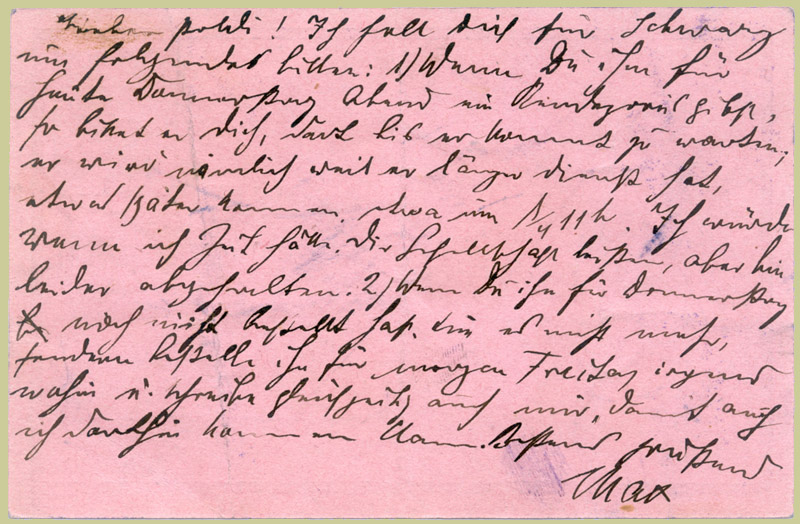 Lieber Poldi! Ich soll Dich für Schwarz
um folgendes bitten: 1) Wenn Du ihm für
heute Donnerstag Abend ein Rendezvous gibst,
so bittet er Dich, dort bis er kommt zu warten;
er wird nämlich weil er länger Dienst hat,
etwas später kommen, etwa um 1/4 11 h. Ich würde
wenn ich Zeit hätte, Dir Gesellschaft leisten, aber bin
leider abgehalten. 2) Wenn Du ihn für Donnerstag
noch nicht bestellt hast, tue es nicht mehr,
sondern bestelle ihn für morgen Freitag irgend
wohin u. schreibe gleichzeitig auch mir, damit auch
ich dorthin kommen kann. Bestens grüßend
Max